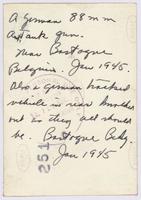 A German 88 mm
Anti tank gun.
Near Bastogne
Belgium. Jan 1945.
Also a German tracked
vehicle in rear knocked
out as they all should
be. Bastogne Belg.
Jan 1945
251